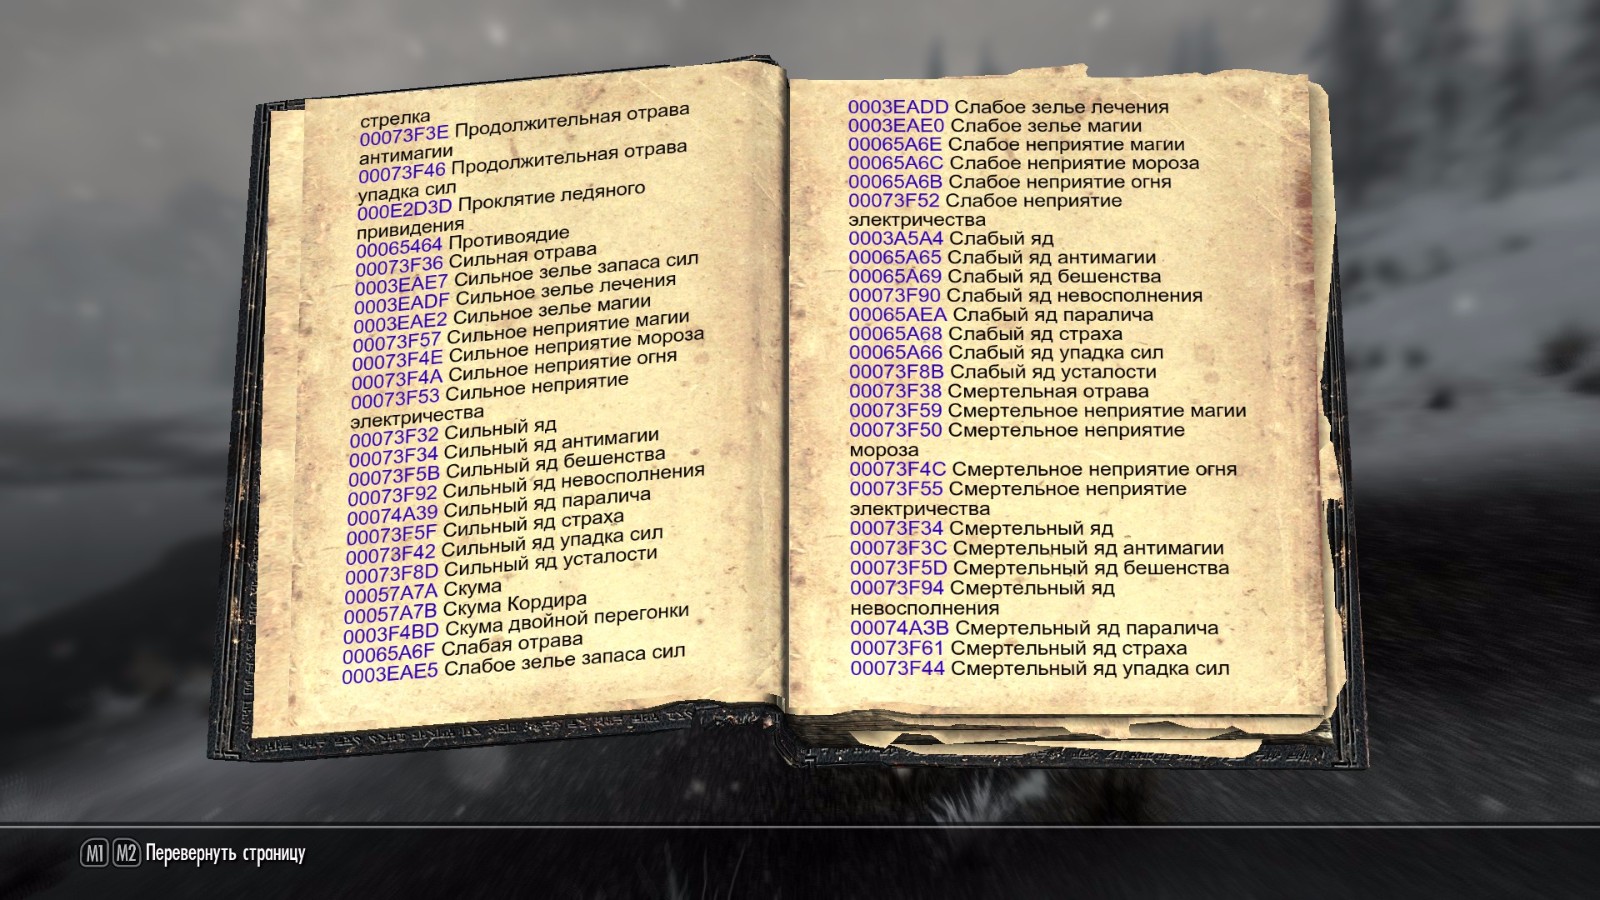 стрелка
00073F3E Продолжительная отрава
антимагии
00073F46 Продолжительная отрава
упадка сил
000E2D3D Проклятие ледяного
привидения
00065464 Противоядие
00073F36 Сильная отрава
0003EAE7 Сильное зелье запаса сил
0003EADF Сильное зелье лечения
0003EAE2 Сильное зелье магии
00073F57 Сильное неприятие магии
00073F4E Сильное неприятие мороза
00073F4A Сильное неприятие огня
00073F53 Сильное неприятие
электричества
00073F32 Сильный яд
00073F34 Сильный яд антимагии
00073F5B Сильный яд бешенства
00073F92 Сильный яд невосполнения
00074A39 Сильный яд паралича
00073F5F Сильный яд страха
00073F42 Сильный яд упадка сил
00073F8D Сильный яд усталости
00057A7A Скума
00057A7B Скума Кордира
0003F4BD Скума двойной перегонки
00065A6F Слабая отрава
0003EAE5 Слабое зелье запаса сил
0003EADD Слабое зелье лечения
0003EAE0 Слабое зелье магии
00065A6E Слабое неприятие магии
00065A6C Слабое неприятие мороза
00065A6B Слабое неприятие огня
00073F52 Слабое неприятие
электричества
0003A5A4 Слабый яд
00065A65 Слабый яд антимагии
00065A69 Слабый яд бешенства
00073F90 Слабый яд невосполнения
00065AEA Слабый яд паралича
00065A68 Слабый яд страха
00065A66 Слабый яд упадка сил
00073F8B Слабый яд усталости
00073F38 Смертельная отрава
00073F59 Смертельное неприятие магии
00073F50 Смертельное неприятие
мороза
00073F4C Смертельное неприятие огня
00073F55 Смертельное неприятие
электричества
00073F34 Смертельный яд
00073F3C Смертельный яд антимагии
00073F5D Смертельный яд бешенства
00073F94 Смертельный яд
невосполнения
00074A3B Смертельный яд паралича
00073F61 Смертельный яд страха
00073F44 Смертельный яд упадка сил
M1 M2 Перевернуть страницу